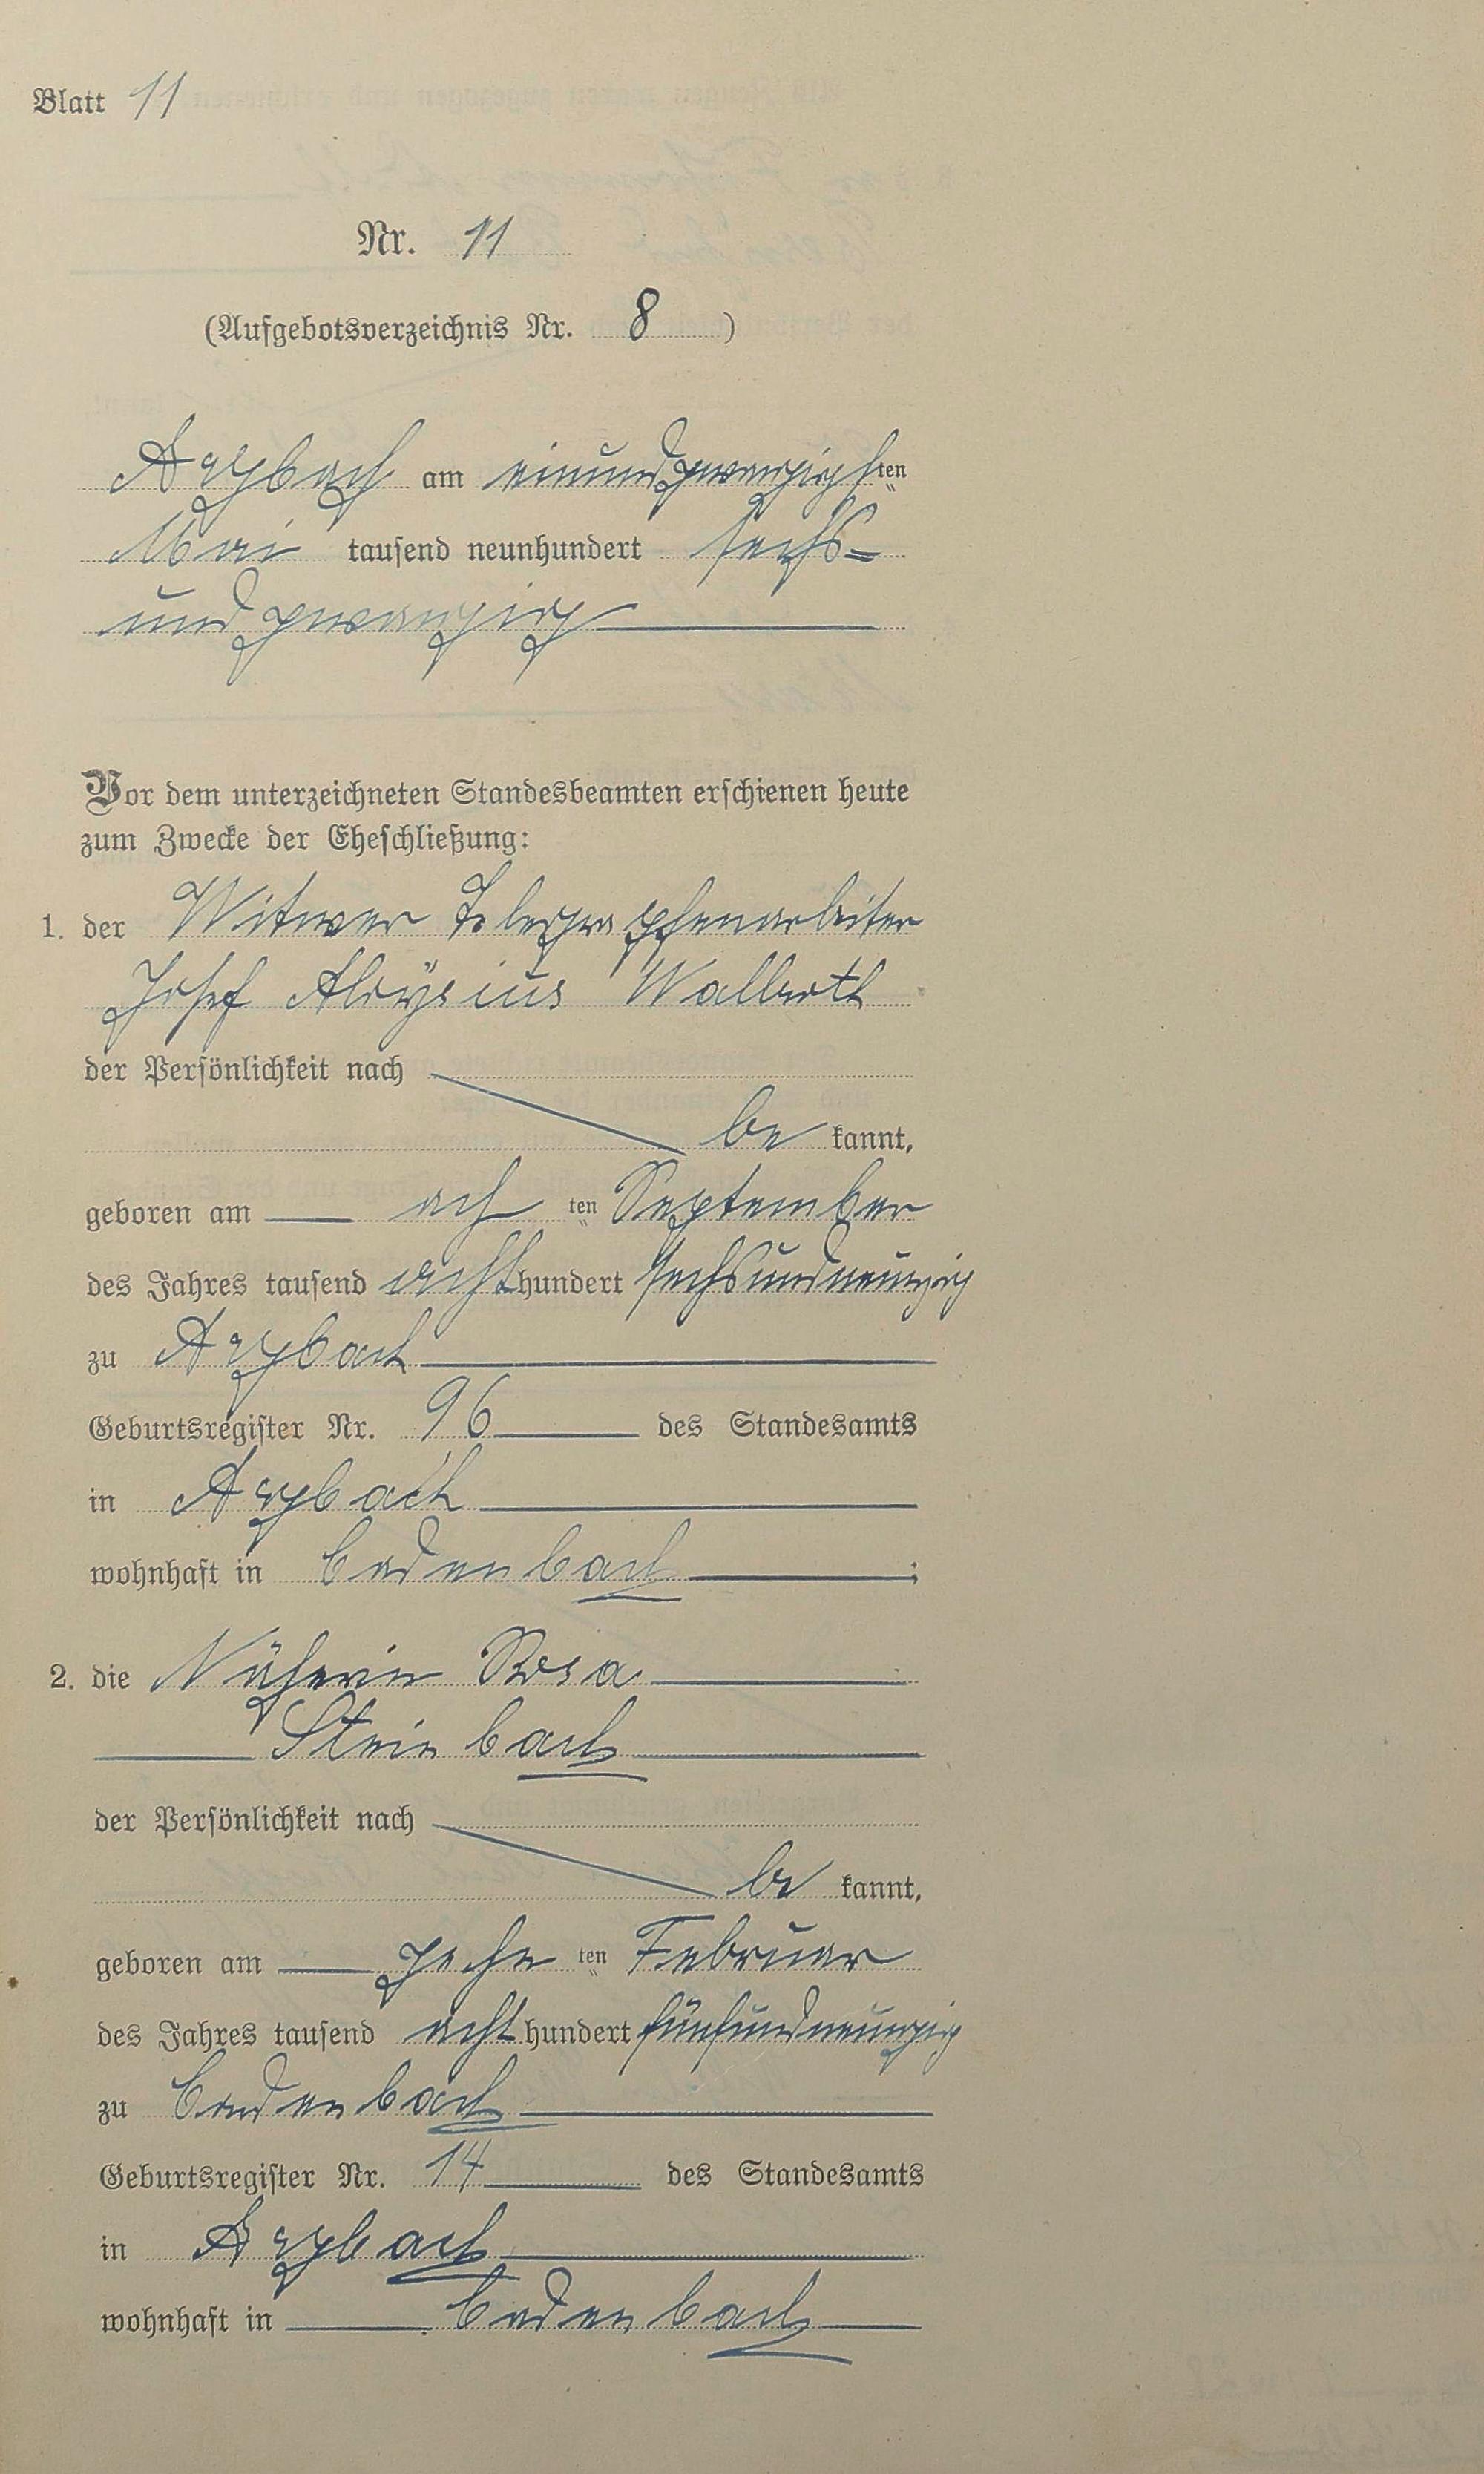 Blatt 11
Nr. 11
(Aufgebotsverzeichnis Nr. 8 )
Arzbach am einundzwanzigsten
Mai tausend neunhundert sechs=
undzwanzig
Vor dem unterzeichneten Standesbeamten erschienen heute
zum Zwecke der Eheschließung:
1. der Witwer Telegraphenarbeiter
Josef Aloysius Wallroth
der Persönlichkeit nach
be kannt,
geboren am ach ten September
des Jahres tausend acht hundert sechsundneunzig
zu Arzbach
Geburtsregister Nr. 96 des Standesamts
in Arzbach
wohnhaft in Cadenbach ;
2. die Näherin Rosa
Steinbach
der Persönlichkeit nach
be kannt,
geboren am zehn ten Februar
des Jahres tausend acht hundert fünfundneunzig
zu Cadenbach
Geburtsregister Nr. 14 des Standesamts
in Arzbach
wohnhaft in Cadenbach